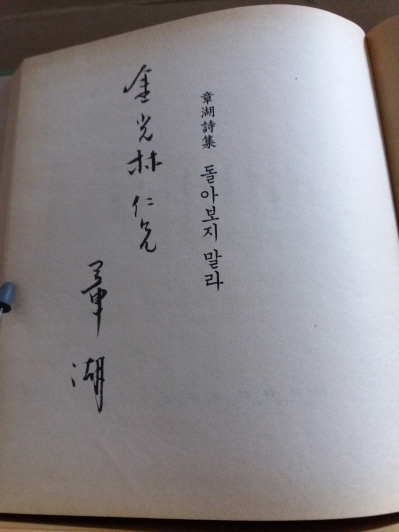 章湖詩集 돌아보지 말라
金光林 仁兄
章湖